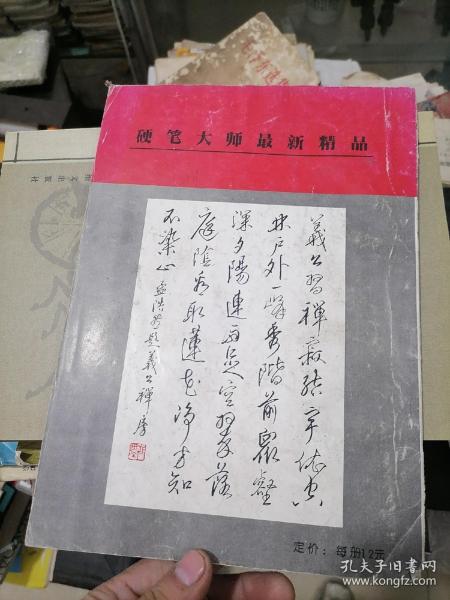 硬笔大师最新精品
義公習禪寂結宇依空
林戶外一峯秀階前眾壑
深夕陽連雨足空翠落
庭陰看取蓮花净方知
不染心 孟浩然題義公禪房
定价：每册12元
孔夫子旧书网
www.kongfz.com